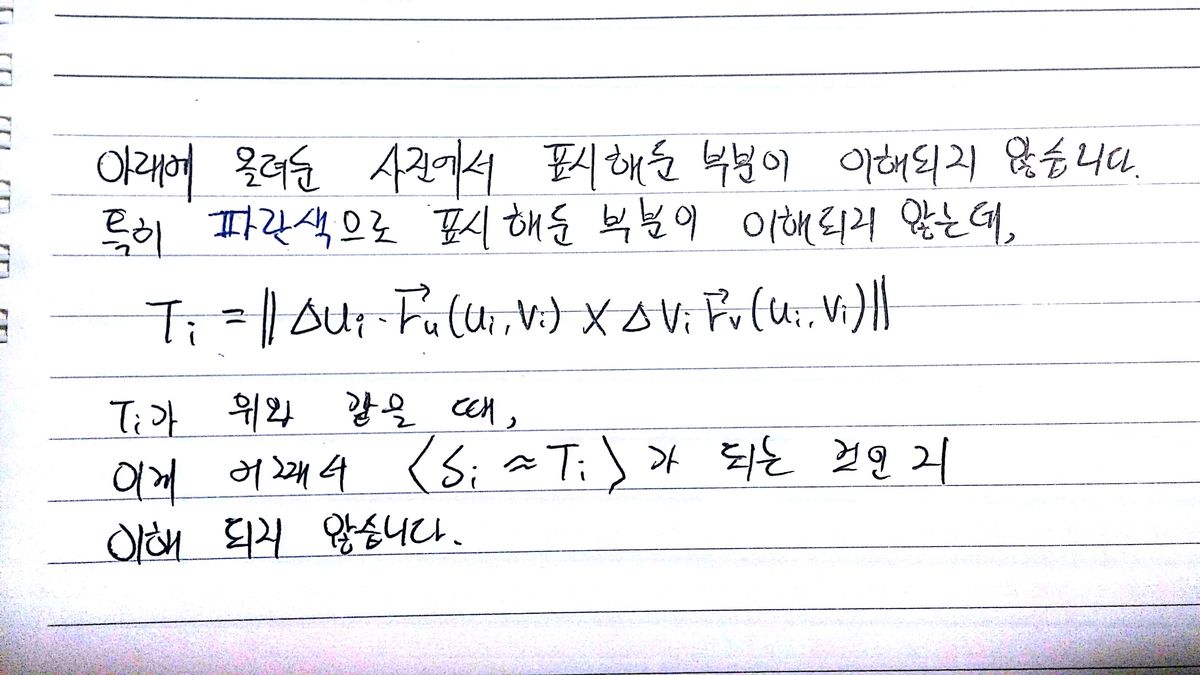 아래에 올려둔 사진에서 표시해둔 부분이 이해되지 않습니다.
특히 파란색으로 표시해둔 부분이 이해되지 않는데,
Ti = || Δui · r⃗u(ui, vi) × Δvi r⃗v(ui, vi) ||
Ti가 위와 같을 때,
이게 어째서 <Si ≈ Ti>가 되는 것인지
이해 되지 않습니다.